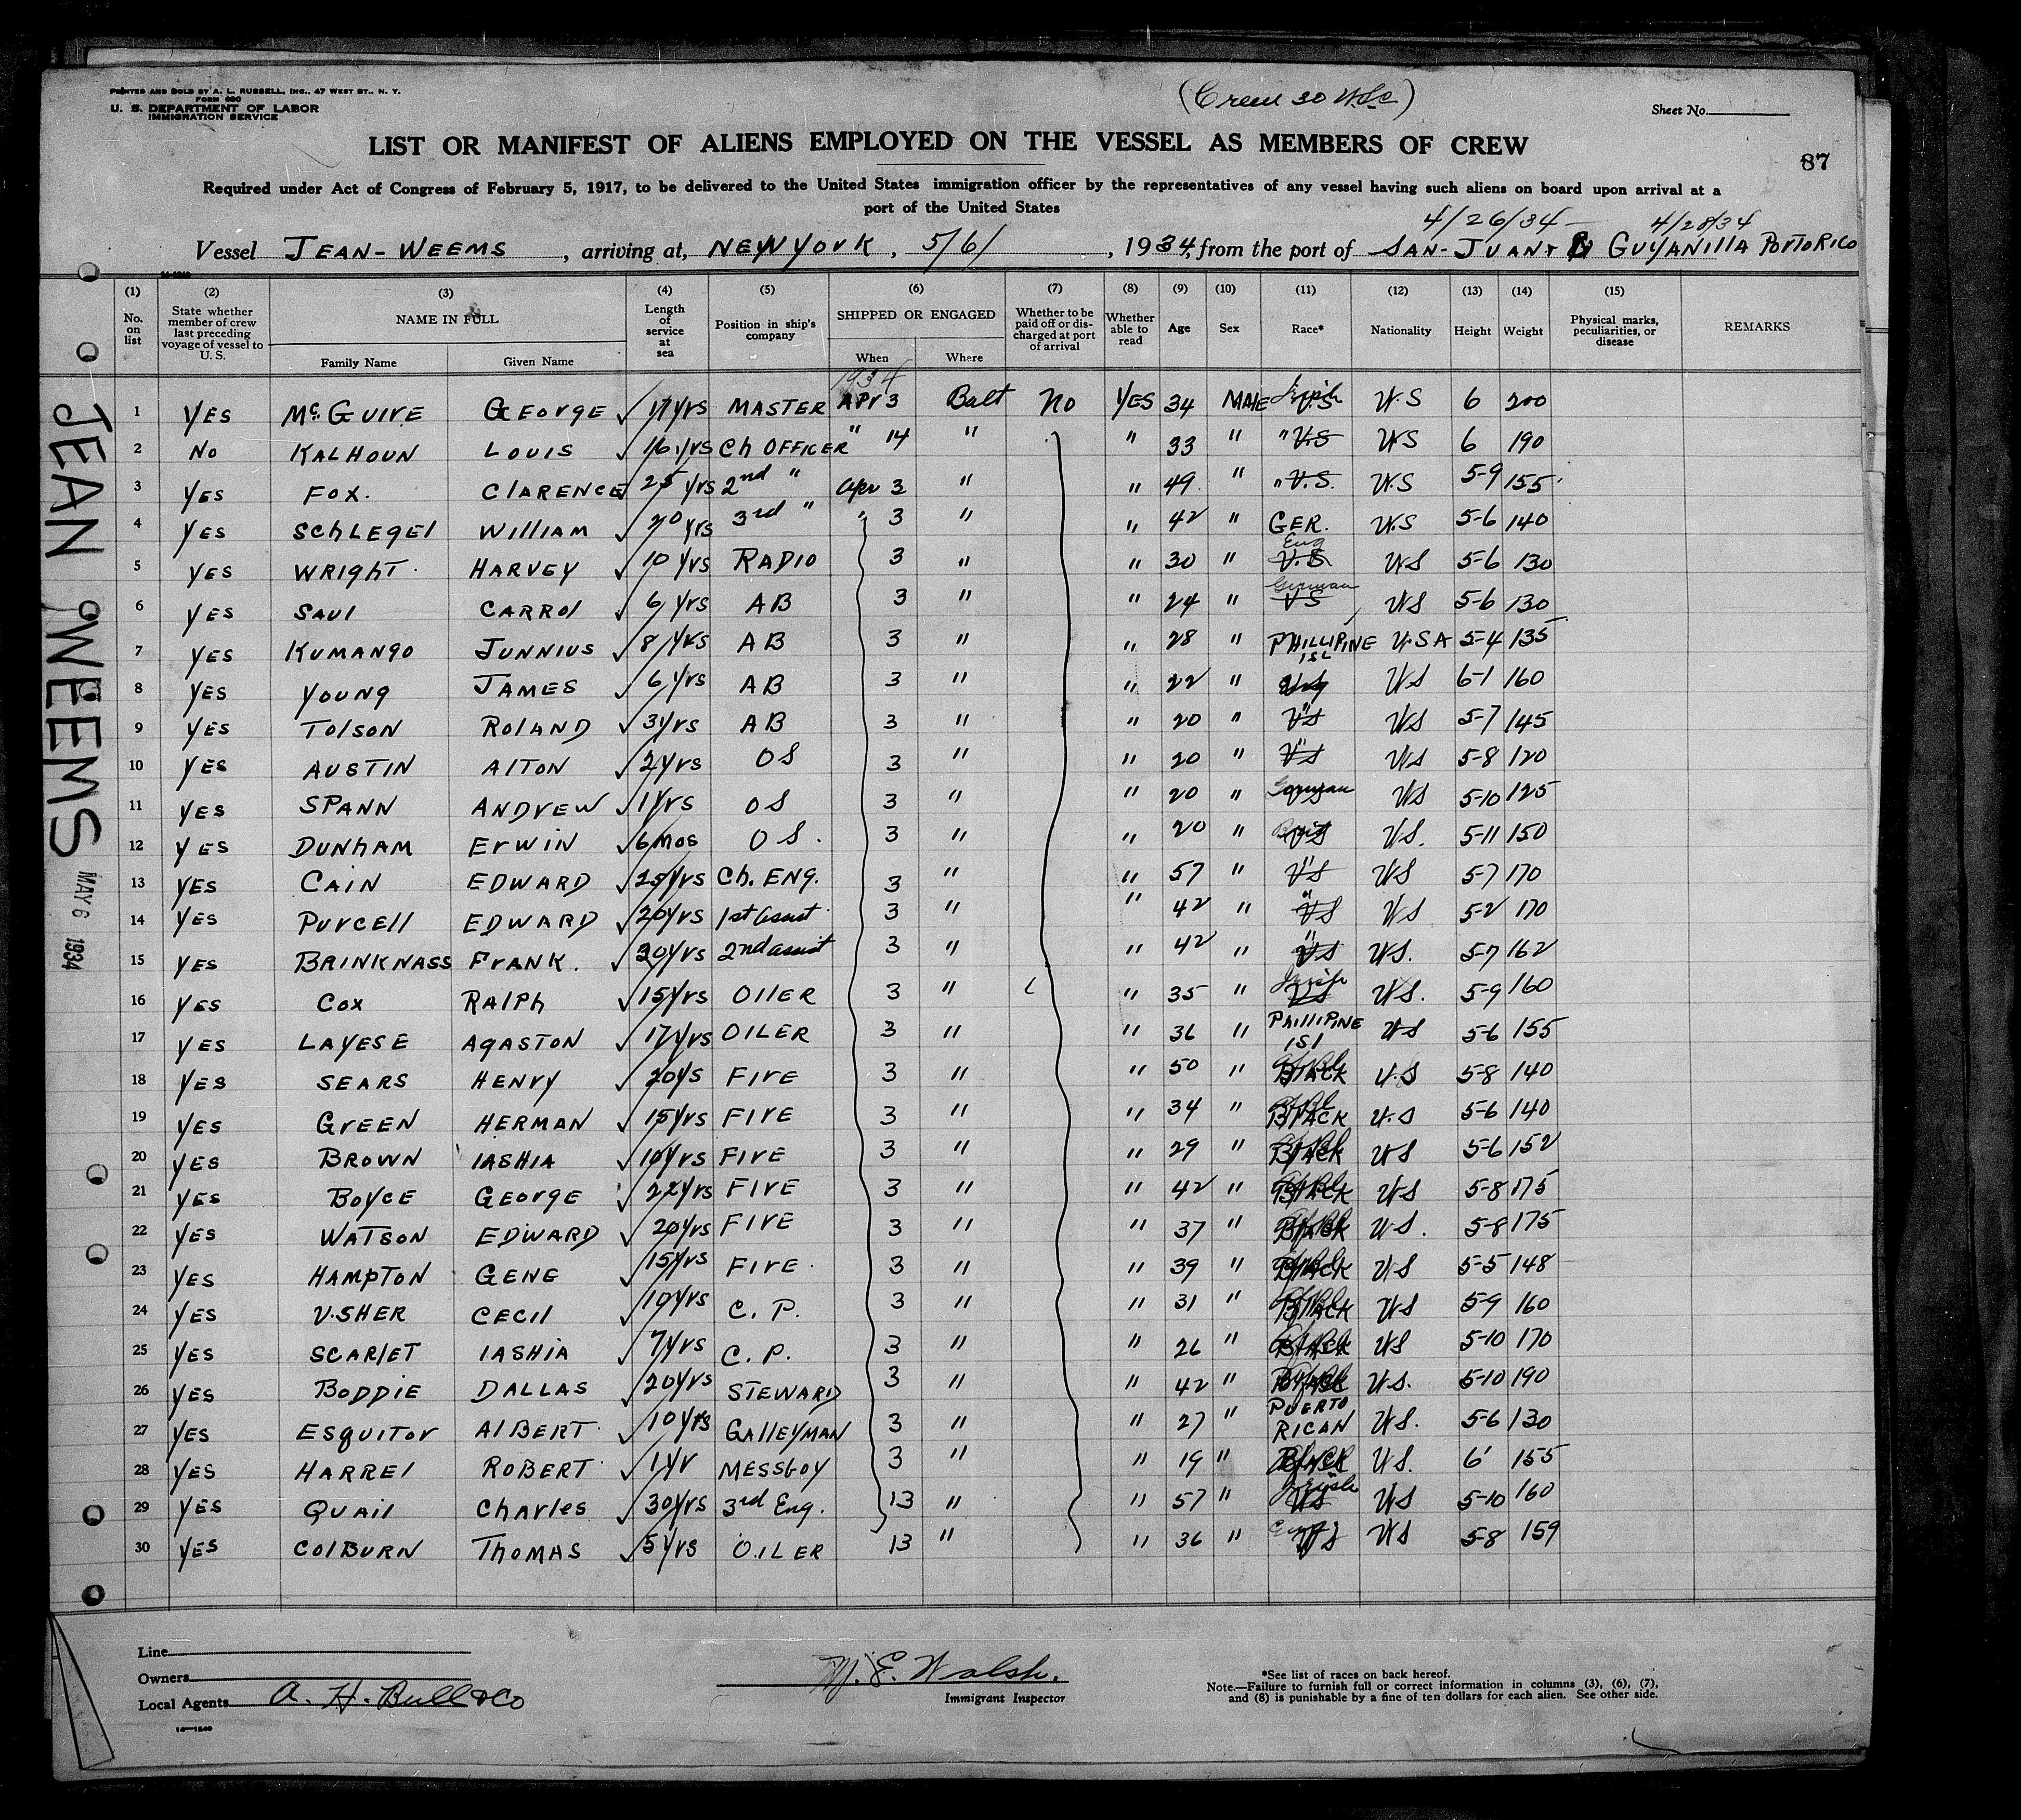 PRINTED AND SOLD BY A. L. RUSSELL, INC., 47 WEST ST., N. Y.
FORM 680
U. S. DEPARTMENT OF LABOR
IMMIGRATION SERVICE
(Crew 30 U.S.C)
Sheet No.
LIST OR MANIFEST OF ALIENS EMPLOYED ON THE VESSEL AS MEMBERS OF CREW
87
Required under Act of Congress of February 5, 1917, to be delivered to the United States immigration officer by the representatives of any vessel having such aliens on board upon arrival at a
port of the United States
4/26/34 4/28/34
Vessel JEAN-WEEMS, arriving at, NEW YORK, 5/6/, 1934, from the port of SAN-JUAN + GUYANILLA PORTO RICO
(1) No. on list (2) State whether member of crew last preceding voyage of vessel to U. S. (3) NAME IN FULL Family Name Given Name (4) Length of service at sea (5) Position in ship's company (6) SHIPPED OR ENGAGED When Where (7) Whether to be paid off or discharged at port of arrival (8) Whether able to read (9) Age (10) Sex (11) Race* (12) Nationality (13) Height (14) Weight (15) Physical marks, peculiarities, or disease REMARKS
1934
1 YES McGUIRE GEORGE 17 yrs MASTER APR 3 Balt No YES 34 MALE Irish US 6 200
2 No KALHOUN LOUIS 16 yrs Ch OFFICER " 14 " " 33 " " US 6 190
3 YES FOX. CLARENCE 25 yrs 2nd " Apr 3 " " 49 " " US 5-9 155
4 YES SCHLEGEL WILLIAM 20 yrs 3rd " " 3 " " 42 " GER. US 5-6 140
5 YES WRIGHT HARVEY 10 yrs RADIO 3 " " 30 " Eng US 5-6 130
6 YES SAUL CARROL 6 yrs AB 3 " " 24 " German US 5-6 130
7 YES KUMANGO JUNNIUS 8 yrs AB 3 " " 28 " PHILLIPINE ISL USA 5-4 135
8 YES YOUNG JAMES 6 yrs AB 3 " " 22 " US 6-1 160
9 YES TOLSON ROLAND 3 yrs AB 3 " " 20 " " US 5-7 145
10 YES AUSTIN ALTON 2 yrs OS 3 " " 20 " " US 5-8 120
11 YES SPANN ANDREW 1 yrs OS 3 " " 20 " German US 5-10 125
12 YES DUNHAM ERWIN 6 mos OS. 3 " " 20 " US. 5-11 150
13 YES CAIN EDWARD 25 yrs Ch. ENG. 3 " " 57 " " US 5-7 170
14 YES PURCELL EDWARD 20 yrs 1st Assist 3 " " 42 " " US 5-2 170
15 YES BRINKNASS FRANK. 20 yrs 2nd assist 3 " " 42 " " US. 5-7 162
16 YES COX RALPH 15 yrs OILER 3 " " 35 " Irish US. 5-9 160
17 YES LAYESE AGASTON 17 yrs OILER 3 " " 36 " PHILLIPINE ISL US 5-6 155
18 YES SEARS HENRY 20 yS FIRE 3 " " 50 " BLACK U.S 5-8 140
19 YES GREEN HERMAN 15 yrs FIRE 3 " " 34 " BLACK U.S 5-6 140
20 YES BROWN IASHIA 10 yrs FIRE 3 " " 29 " BLACK US 5-6 152
21 YES BOYCE GEORGE 22 yrs FIRE 3 " " 42 " BLACK US 5-8 175
22 YES WATSON EDWARD 20 yrs FIRE 3 " " 37 " BLACK US. 5-8 175
23 YES HAMPTON GENE 15 yrs FIRE 3 " " 39 " BLACK US 5-5 148
24 YES USHER CECIL 10 yrs C. P. 3 " " 31 " BLACK US 5-9 160
25 YES SCARLET IASHIA 7 yrs C. P. 3 " " 26 " BLACK US 5-10 170
26 YES BODDIE DALLAS 20 yrs STEWARD 3 " " 42 " US. 5-10 190
27 YES ESQUITOR ALBERT 10 yrs GALLEYMAN 3 " " 27 " PUERTO RICAN US. 5-6 130
28 YES HARREL ROBERT 1 yr MESSBOY 3 " " 19 " BLACK US. 6' 155
29 YES QUAIL CHARLES 30 yrs 3rd Eng. 13 " " 57 " Irish US 5-10 160
30 YES COLBURN THOMAS 5 yrs OILER 13 " " 36 " US 5-8 159
JEAN WEEMS
MAY 6 1934
Line
Owners
Local Agents A. H. Bull & Co
M. E. Walsh.
Immigrant Inspector
*See list of races on back hereof.
Note.—Failure to furnish full or correct information in columns (3), (6), (7),
and (8) is punishable by a fine of ten dollars for each alien. See other side.
14—1240